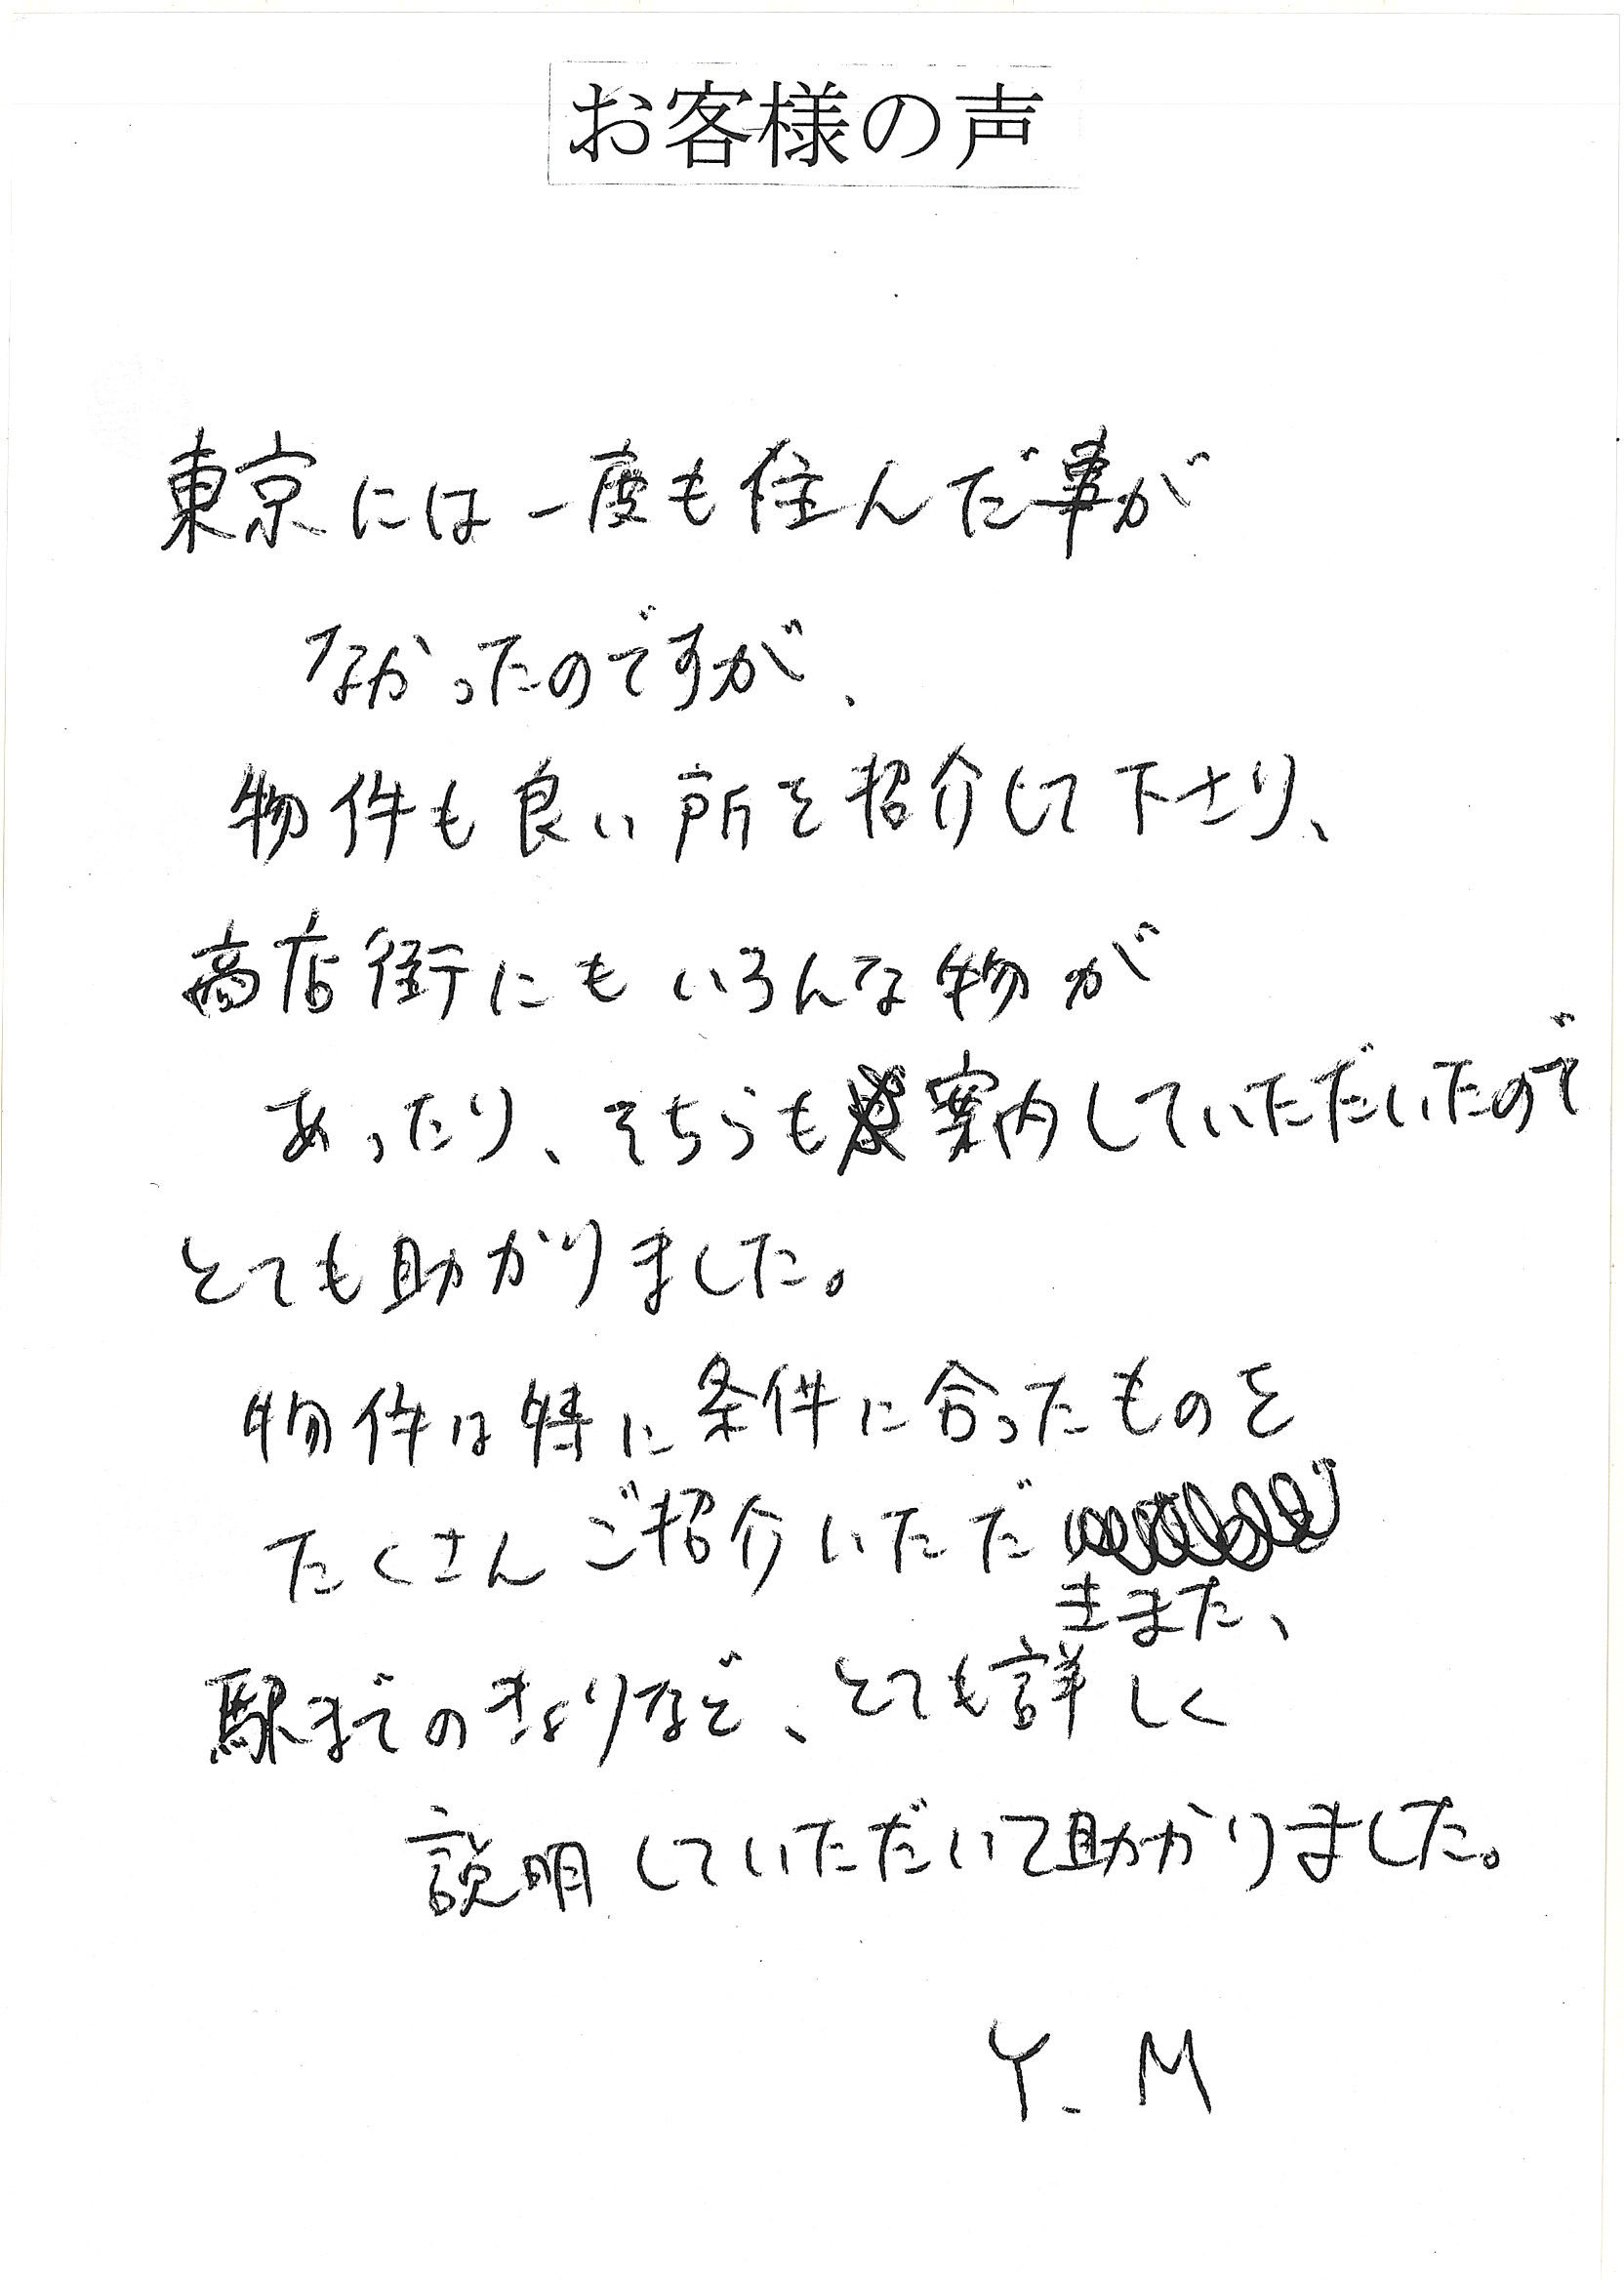 お客様の声
東京には一度も住んだ事が
なかったのですが、
物件も良い所を紹介して下さり、
商店街にもいろんな物が
あったり、そちらも案内していただいたので
とても助かりました。
物件は特に条件に合ったものを
たくさんご紹介いただ
きまた、
駅までのきょりなど、とても詳しく
説明していただいて助かりました。
Y.M